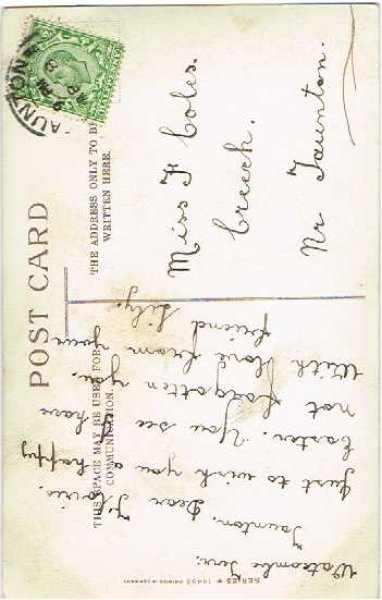 POST CARD
THIS SPACE MAY BE USED FOR
COMMUNICATION.
THE ADDRESS ONLY TO BE
WRITTEN HERE.
TAUNTON
AP 13
Watcombe Terr:
Taunton.
Dear Florrie.
Just to wish you a happy
Easter. You see I have
not forgotten you.
With Love from your
friend
Lily.
Miss F Coles.
Creech.
Nr Taunton.